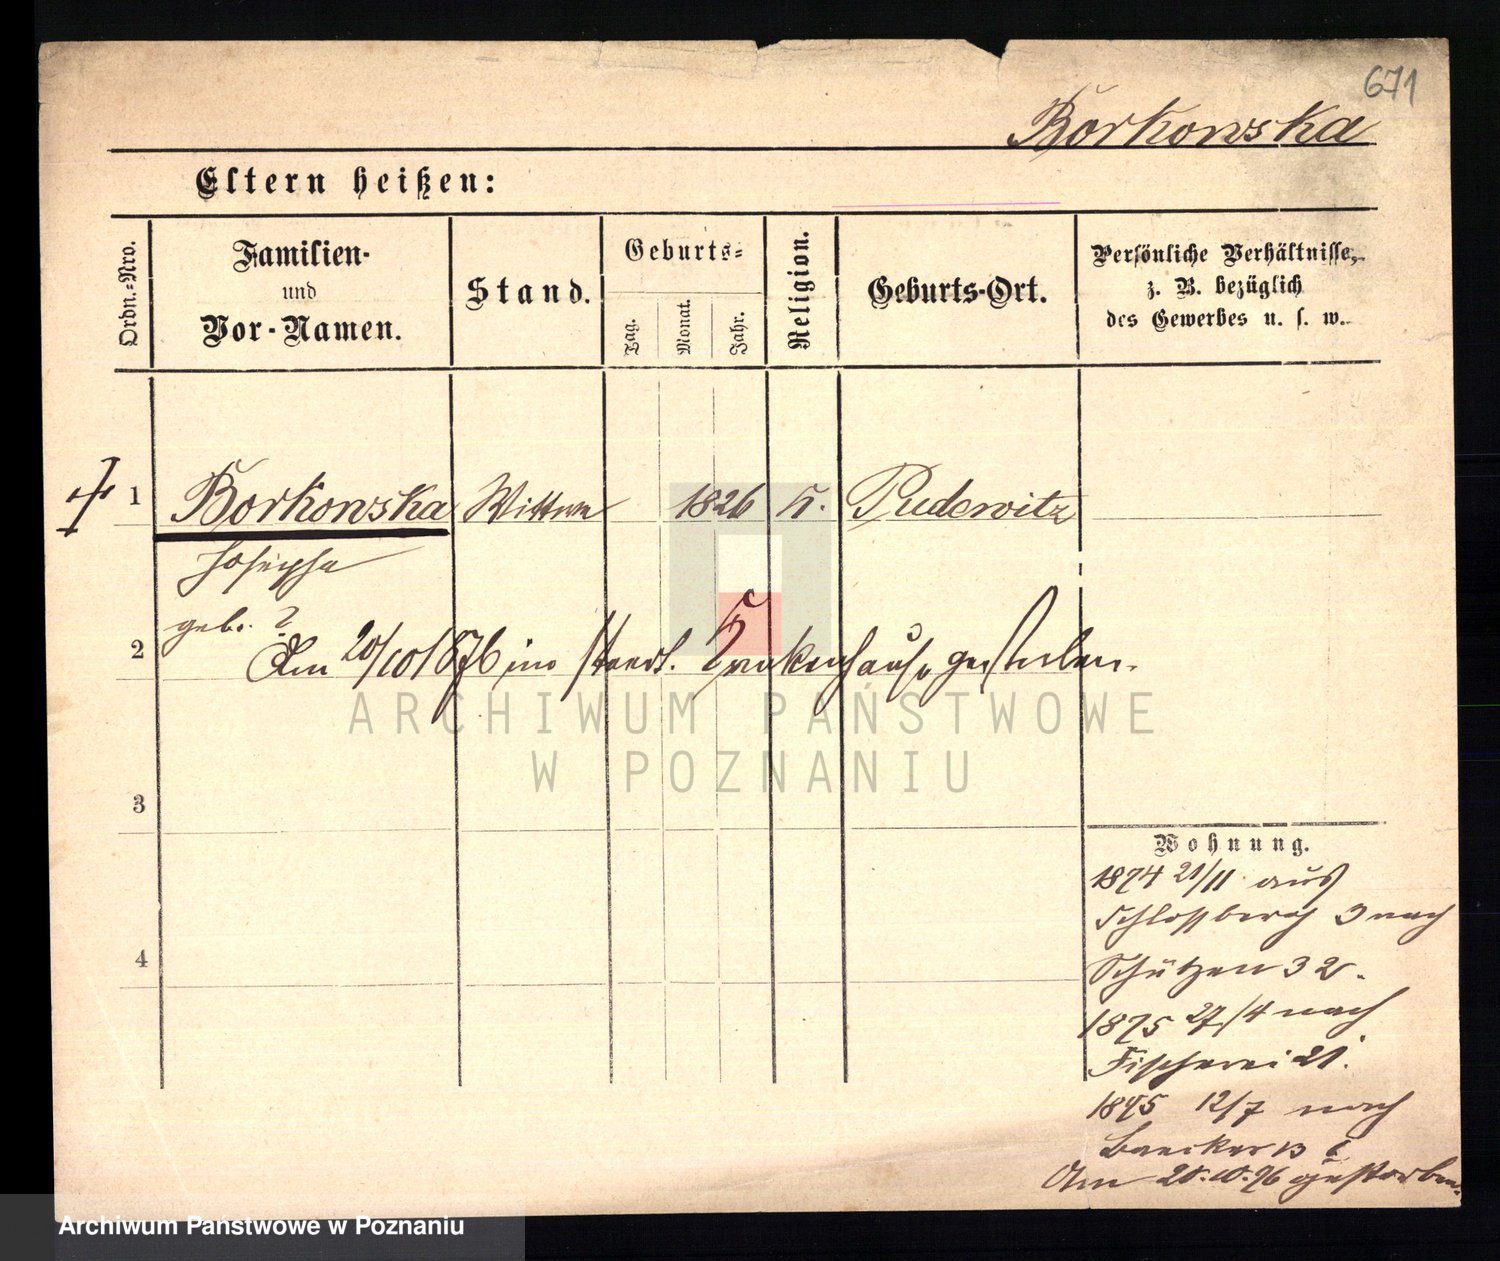 671
Borkowska
Eltern heißen:
Ordn.-Nro.
Familien-
und
Vor-Namen.
Stand.
Geburts-
Tag.
Monat.
Jahr.
Religion.
Geburts-Ort.
Persönliche Verhältnisse,
z. B. bezüglich
des Gewerbes u. s. w.
1 Borkowska Wittwe 1826 k. Pudewitz
Josepha
geb. ?
2
Am 20/10 1876 im städt. Krankenhause gestorben.
ARCHIWUM PAŃSTWOWE
W POZNANIU
3
4
Wohnung.
1874 21/11 aus
Schlossberg 3 nach
Schützen 32.
1875 27/4 nach
Fischerei 21.
1875 12/7 nach
Baecker 13
Am 20.10.76 gestorben.
Archiwum Państwowe w Poznaniu